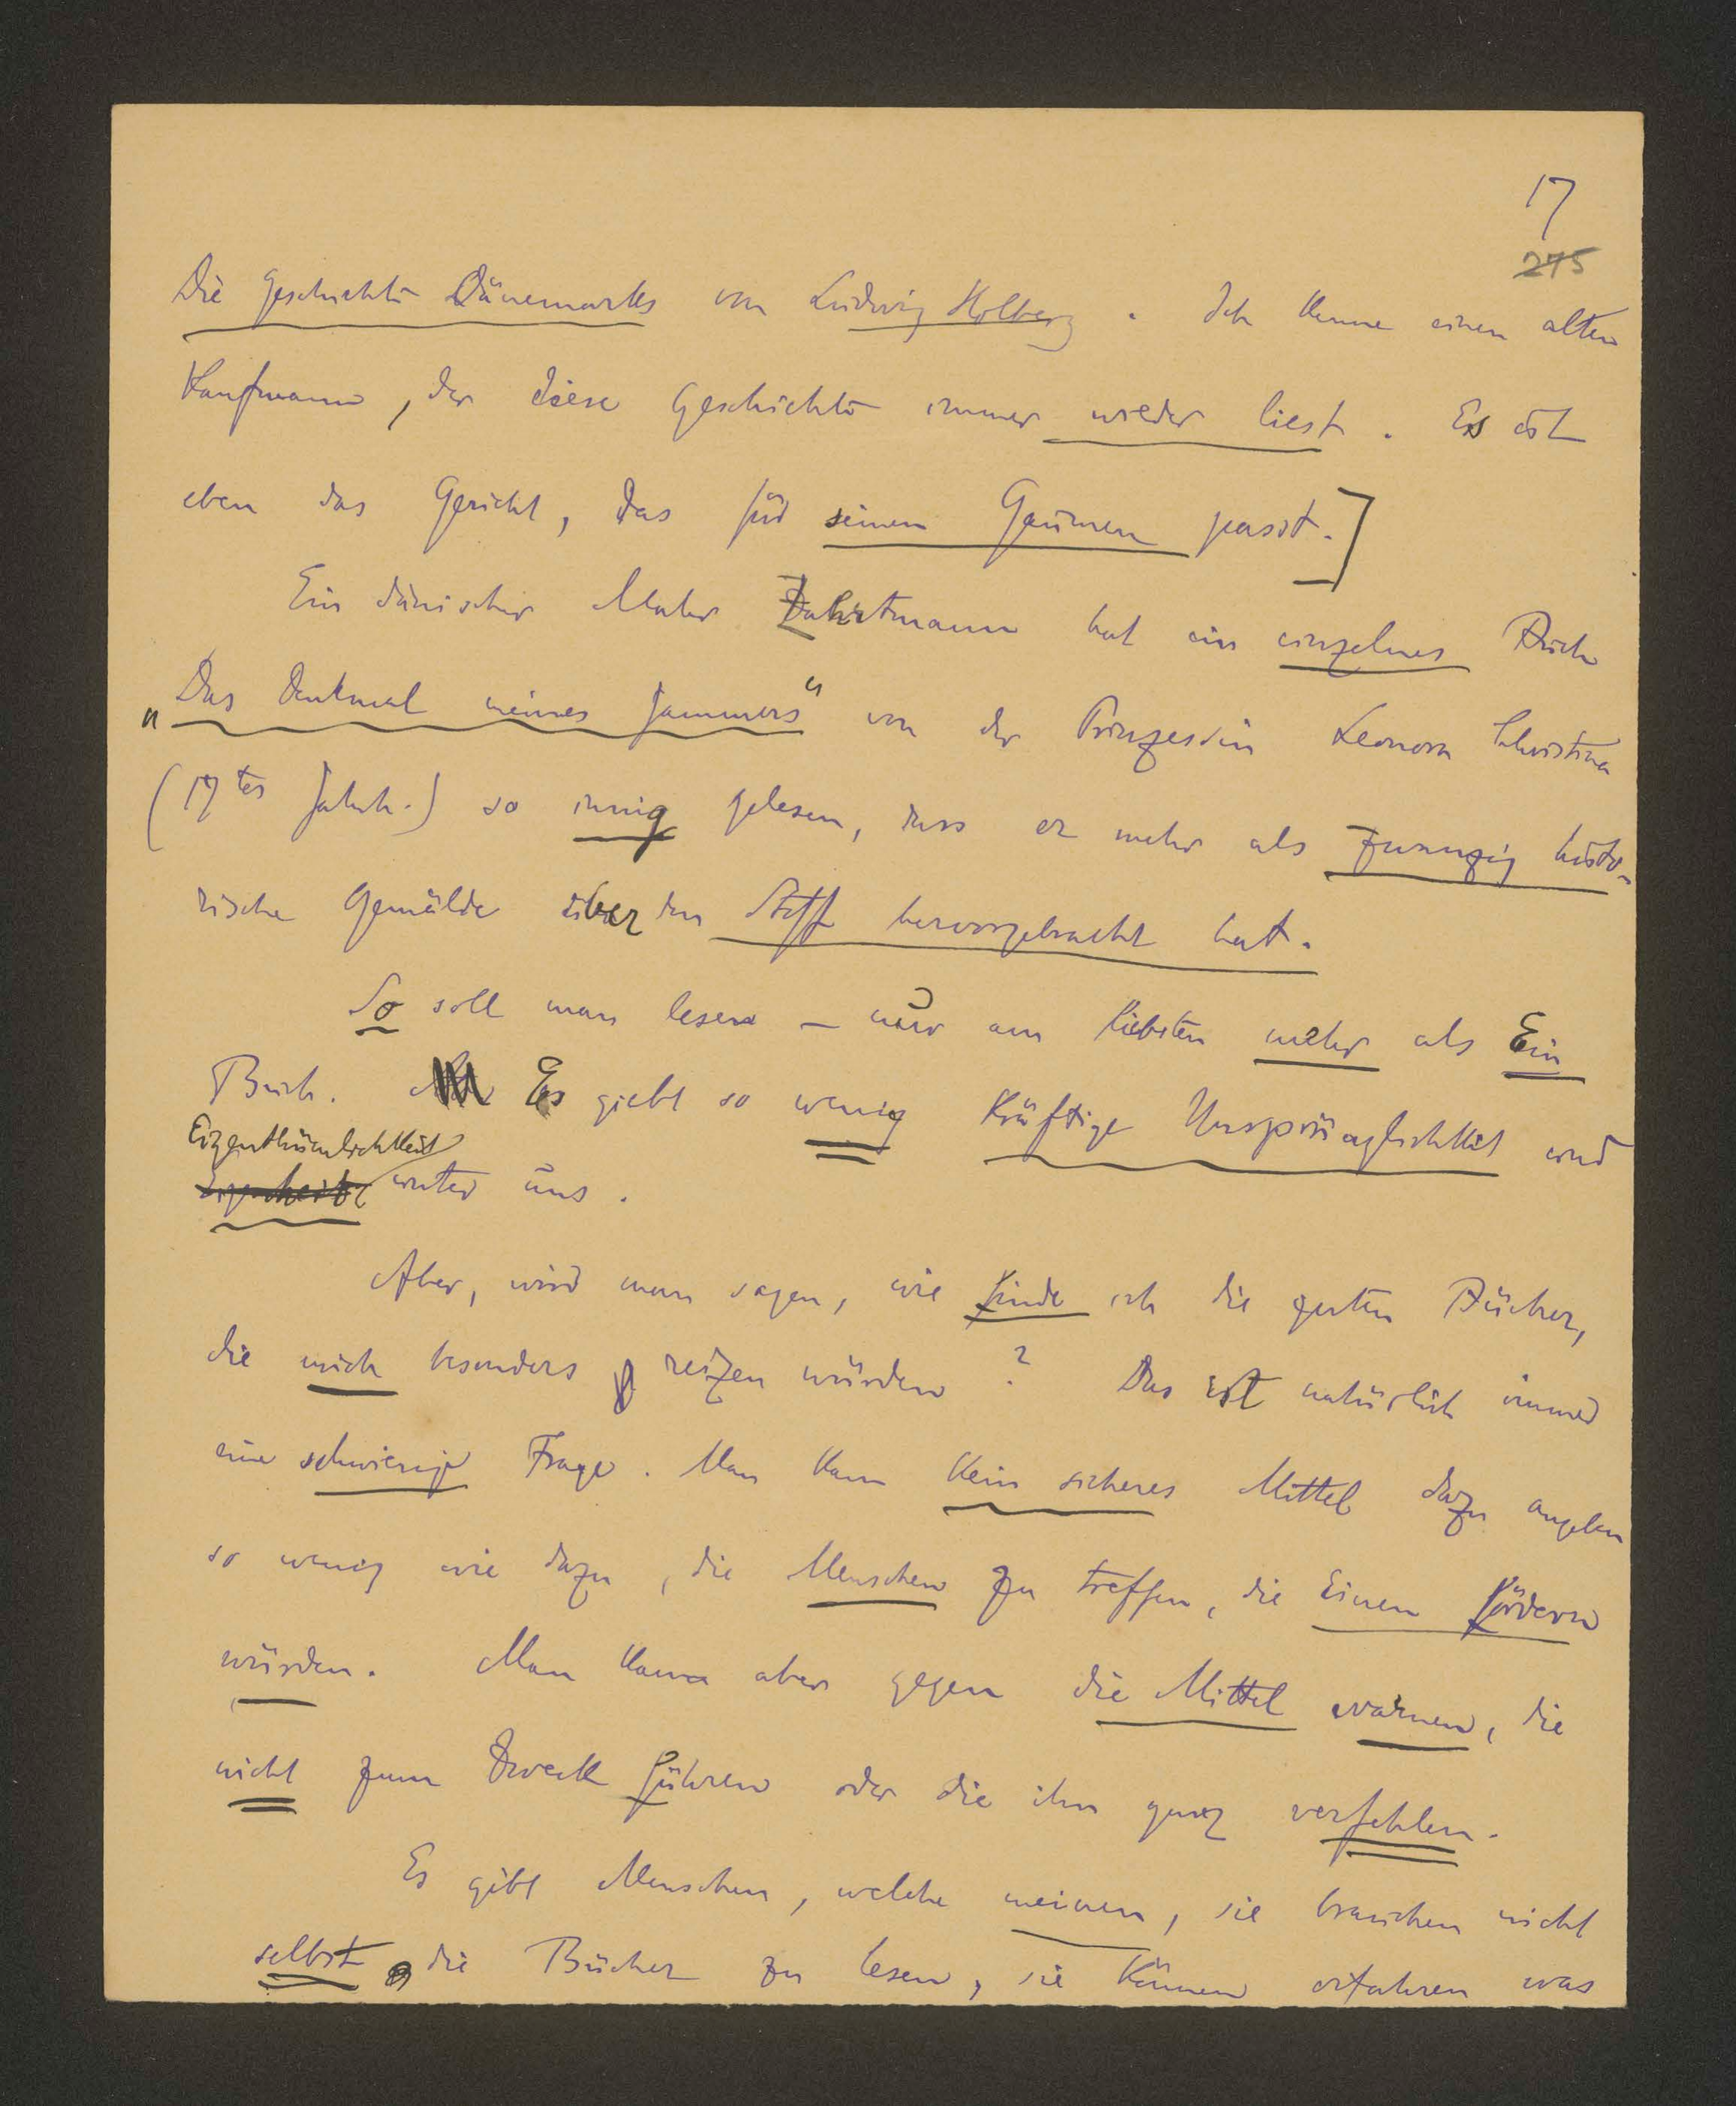 17
275
Die Geschichte Dänemarks von Ludwig Holberg. Ich kenne einen alten
Kaufmann, der diese Geschichte immer wieder liest. Es ist
eben das Gericht, das für seinen Gaumen passt.]
Ein dänischer Maler Zahrtmann hat ein einzelnes Buch
„Das Denkmal meines Jammers“ von der Prinzessin Leonora Christina
(17tes Jahrh.) so innig gelesen, dass er mehr als zwanzig histo-
rische Gemälde über den Stoff hervorgebracht hat.
So soll man lesen – nur am liebsten mehr als Ein
Buch. Es giebt so wenig kräftige Ursprünglichkeit und
Eigenthümlichkeit
unter uns.
Aber, wird man sagen, wie finde ich die guten Bücher,
die mich besonders reizen würden? Das ist natürlich immer
eine schwierige Frage. Man kann kein sicheres Mittel dazu angeben
so wenig wie dazu, die Menschen zu treffen, die Einen fördern
würden. Man kann aber gegen die Mittel warnen, die
nicht zum Zweck führen oder die ihn ganz verfehlen.
Es gibt Menschen, welche meinen, sie brauchen nicht
selbst die Bücher zu lesen, sie können erfahren was